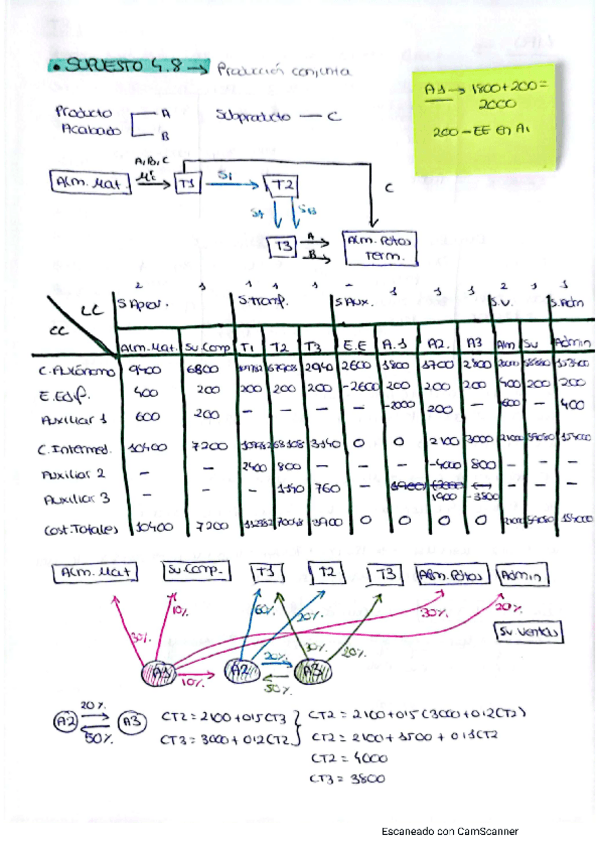 • SUPUESTO 4.8 → Producción conjunta
A1 → 1800+200=
2000
200 - EE en A1
Producto
Acabado
A
B
Subproducto — C
Alm. Mat.
A, B, C
T1
S1
T2
C
SA
SB
T3
A
B
Alm. Ptos
Term.
2 1 1 1 1 - 1 1 1 2 1 1
LC
CC
S. Aprov.
S. Transf.
S. Aux.
S.V.
S. Adm
Alm. Mat. Su Comp T1 T2 T3 E.E A.1 A2. A3 Alm Su Admin
C. Autónomo 9400 6800 2940 2600 1800 1700 2800
E. Edif. 400 200 200 200 200 -2600 200 200 200 400 200 200
Auxiliar 1 600 200 - - - - -2000 200 - 600 - 400
C. Intermed. 10400 7200 68108 3140 0 0 2100 3000
Auxiliar 2 - - 2400 800 - - - -4000 800 - - -
Auxiliar 3 - - 1140 760 - 1900 -3800 - - -
Cost. Totales 10400 7200 3900 0 0 0 0
Alm. Mat Su Comp. T1 T2 T3 Alm. Ptos Admin
Su Ventas
30% 10% 60% 20% 30% 20% 30% 20%
A1 10% A2 20% 50% A3
A2 20% 50% A3
CT2 = 2100 + 0'5 CT3
CT3 = 3000 + 0'2 CT2
CT2 = 2100 + 0'5 (3000 + 0'2 CT2)
CT2 = 2100 + 1500 + 0'1 CT2
CT2 = 4000
CT3 = 3800
Escaneado con CamScanner